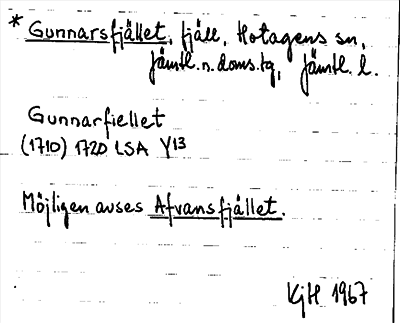 * Gunnarsfjället, fjäll, Hotagens sn,
Jämtl. n. doms.tg, Jämtl. l.
Gunnarfiellet
(1710) 1720 LSA Y13
Möjligen avses Afvansfjället.
KjH 1967